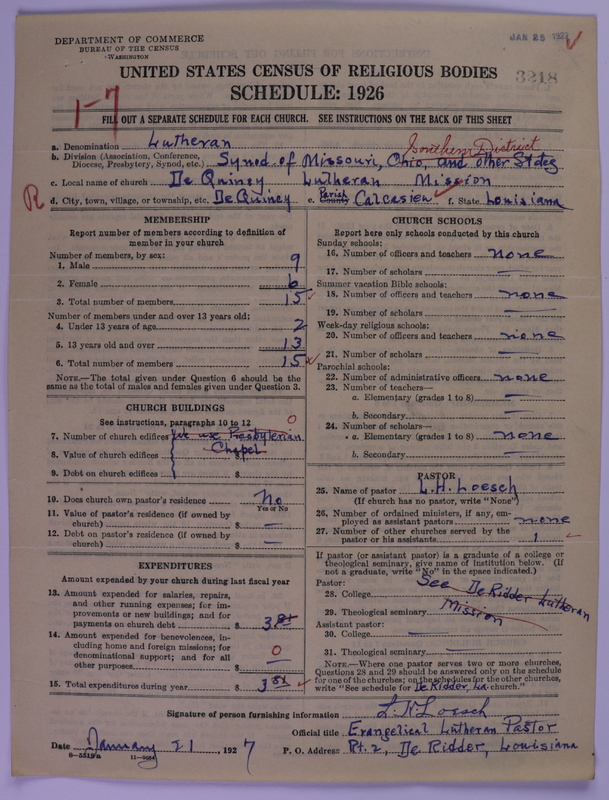 DEPARTMENT OF COMMERCE
BUREAU OF THE CENSUS
WASHINGTON
JAN 25 1927
3218
UNITED STATES CENSUS OF RELIGIOUS BODIES
SCHEDULE: 1926
1-7
FILL OUT A SEPARATE SCHEDULE FOR EACH CHURCH. SEE INSTRUCTIONS ON THE BACK OF THIS SHEET
a. Denomination Lutheran
Southern District
b. Division (Association, Conference, Diocese, Presbytery, Synod, etc.) Synod of Missouri, Ohio, and other States
c. Local name of church De Quincy Lutheran Mission
R
d. City, town, village, or township, etc. De Quincy e. County Parish Calcasieu f. State Louisiana
MEMBERSHIP
Report number of members according to definition of
member in your church
Number of members, by sex:
1. Male 9
2. Female 6
3. Total number of members 15
Number of members under and over 13 years old:
4. Under 13 years of age 2
5. 13 years old and over 13
6. Total number of members 15
NOTE.—The total given under Question 6 should be the
same as the total of males and females given under Question 3.
CHURCH BUILDINGS
See instructions, paragraphs 10 to 12
0
7. Number of church edifices We use Presbyterian
8. Value of church edifices Chapel
9. Debt on church edifices $
10. Does church own pastor's residence No
Yes or No
11. Value of pastor's residence (if owned by
church) $ —
12. Debt on pastor's residence (if owned by
church) $ —
EXPENDITURES
Amount expended by your church during last fiscal year
13. Amount expended for salaries, repairs,
and other running expenses; for im-
provements or new buildings; and for
payments on church debt $ 3.81
14. Amount expended for benevolences, in-
cluding home and foreign missions; for
denominational support; and for all
other purposes $ 0 —
15. Total expenditures during year $ 3 81
CHURCH SCHOOLS
Report here only schools conducted by this church
Sunday schools:
16. Number of officers and teachers none
17. Number of scholars —
Summer vacation Bible schools:
18. Number of officers and teachers none
19. Number of scholars —
Week-day religious schools:
20. Number of officers and teachers none
21. Number of scholars —
Parochial schools:
22. Number of administrative officers none
23. Number of teachers—
a. Elementary (grades 1 to 8) —
b. Secondary —
24. Number of scholars—
a. Elementary (grades 1 to 8) none
b. Secondary —
PASTOR
25. Name of pastor L. H. Loesch
(If church has no pastor, write "None")
26. Number of ordained ministers, if any, em-
ployed as assistant pastors none
27. Number of other churches served by the
pastor or his assistants 1
If pastor (or assistant pastor) is a graduate of a college or
theological seminary, give name of institution below. (If
not a graduate, write "No" in the space indicated.)
Pastor:
28. College See De Ridder Lutheran
29. Theological seminary Mission
Assistant pastor:
30. College —
31. Theological seminary —
NOTE.—Where one pastor serves two or more churches,
Questions 28 and 29 should be answered only on the schedule
for one of the churches; on the schedules for the other churches,
write "See schedule for De Ridder, La. church."
Signature of person furnishing information L. H. Loesch
Official title Evangelical Lutheran Pastor
Date January 21, 1927
P. O. Address: Rt. 2, De Ridder, Louisiana